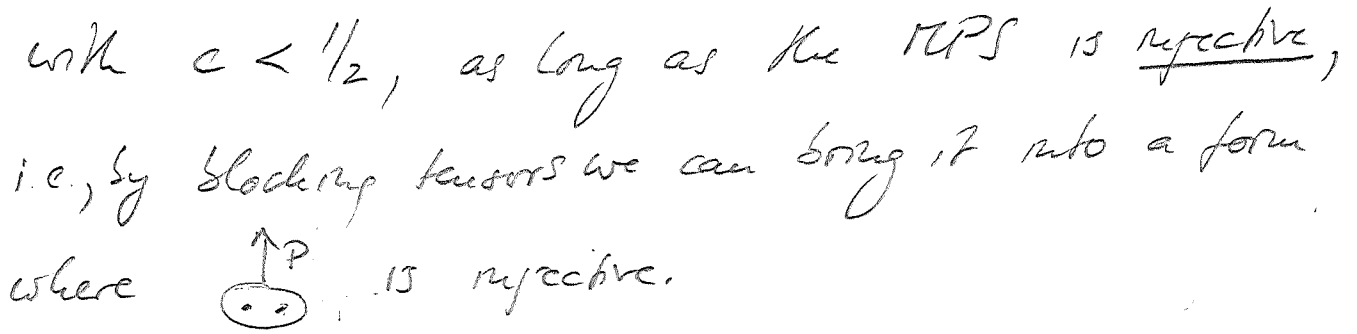 with c < 1/2, as long as the MPS is injective,
i.e., by blocking tensors we can bring it into a form
where P is injective.